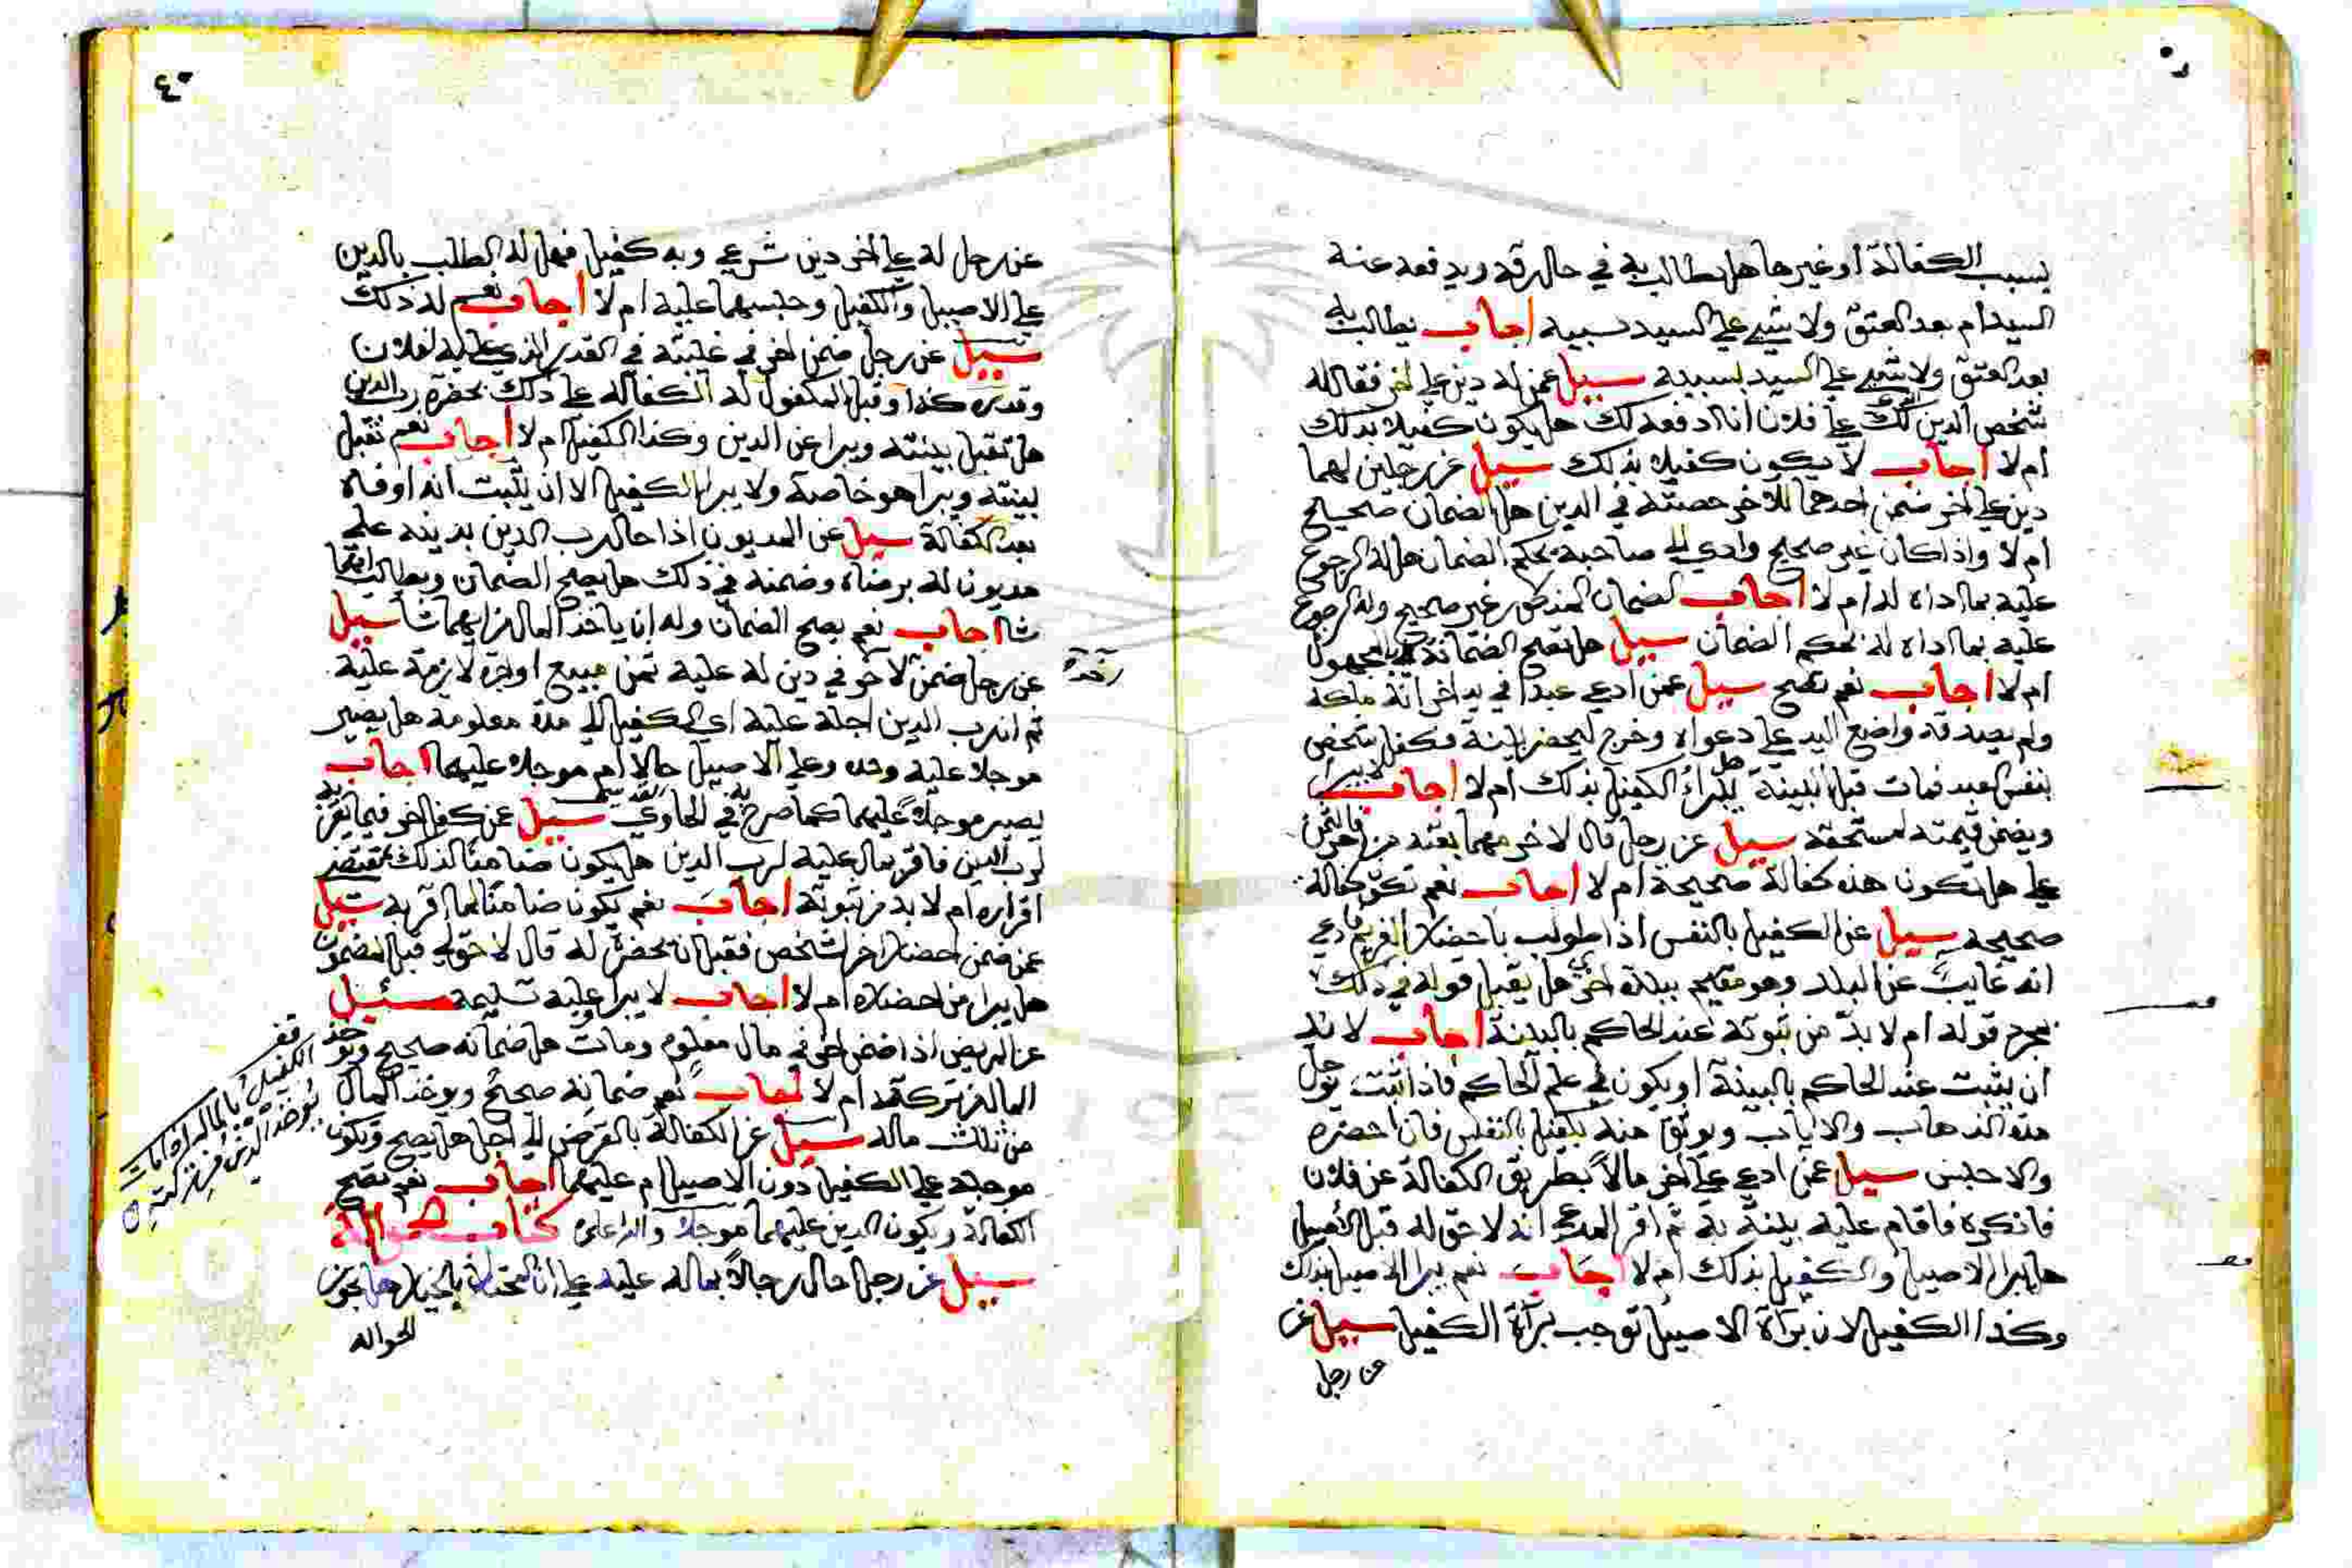 بسبب الكفالة او غيرها هل يطالب به في حال رقه ويدفعه عنه
السيد ام بعد العتق ولا شيء علي السيد بسببه اجاب يطالب به
بعد العتق ولا شيء علي السيد بسببه سيل عمن له دين علي اخر فقال له
شخص الدين الذي لك علي فلان انا ادفعه لك هل يكون كفيلا بذلك
ام لا اجاب لا يكون كفيلا بذلك سيل عن رجلين لهما
دين علي اخر ضمن احدهما للاخر حصته في الدين هل الضمان صحيح
ام لا واذا كان غير صحيح وادي الي صاحبه بحكم الضمان هل له الرجوع
عليه بما اداه له ام لا اجاب الضمان المذكور غير صحيح وله الرجوع
عليه بما اداه له بحكم الضمان سيل هل تصح الضمانة في المجهول
ام لا اجاب نعم تصح سيل عمن ادعي عبدا في يد اخر انه ملكه
ولم يصدقه واضع اليد علي دعواه وخرج ليحضر بينة فكفل شخص
بنفس العبد فمات قبل البينة هل يبراء الكفيل بذلك ام لا اجاب لا يبرا
ويضمن قيمته لمستحقه سيل عن رجل قال لاخر مهما بعته من فالثمن
علي هل تكون هذه كفالة صحيحة ام لا اجاب نعم تكون كفالة
صحيحة سيل عن الكفيل بالنفس اذا طولب باحضار الغريم فادعي
انه غايب عن البلد وهو مقيم ببلدة اخري هل يقبل قوله في ذلك
بمجرد قوله ام لا بد من ثبوته عند الحاكم بالبينة اجاب لا بد
ان يثبت عند الحاكم بالبينة او يكون في علم الحاكم فاذا ثبت يوجل
مدة الذهاب والاياب ويوثق منه بكفيل بالنفس فان احضره
والا حبس سيل عمن ادعي علي اخر مالا بطريق الكفالة عن فلان
فانكره فاقام عليه بينة به ثم اقر المدعي انه لا حق له قبل الاصيل
هل يبرا الاصيل والكفيل بذلك ام لا اجاب نعم يبرا الاصيل بذلك
وكذا الكفيل لان براة الاصيل توجب براة الكفيل سيل عن
عن رجل
٤٠
عن رجل له علي اخر دين شرعي وبه كفيل فهل له الطلب بالدين
علي الاصيل والكفيل وحبسهما عليه ام لا اجاب نعم له ذلك
سيل عن رجل ضمن اخر في غيبته في القدر الذي عليه لفلان
وقدره كذا وقبل المكفول له الكفالة علي ذلك بحضرة رب الدين
هل تقبل بينته ويبرا عن الدين وكذا الكفيل ام لا اجاب نعم تقبل
بينته ويبرا هو خاصة ولا يبرا الكفيل الا ان يثبت انه اوفاه
بعد الكفالة سيل عن المديون اذا احال رب الدين بدينه علي
مديون له برضاه وضمنه في ذلك هل يصح الضمان ويطالب ايهما
شا اجاب نعم يصح الضمان وله ان ياخذ المال من ايهما شا سيل
عن رجل ضمن لاخر في دين له عليه ثمن مبيع او اجرة لازمة عليه
ثم ان رب الدين اجله عليه اي الكفيل الي مدة معلومة هل يصير
موجلا عليه وحده وعلي الاصيل حالا ام موجلا عليهما اجاب
يصير موجلا عليهما كما صرح به في الحاوي القدسي سيل عن كفل اخر فيما يقر به
لرب الدين فاقر بمال عليه لرب الدين هل يكون ضامنا لذلك بمقتضي
اقراره ام لا بد من ثبوته اجاب نعم يكون ضامنا لما اقر به سيل
عمن ضمن احضار اخر لشخص فقبل ان يحضره له قال لا حق لي قبل المضمون
هل يبرا من احضاره ام لا اجاب لا يبرا وعليه تسليمه سئيل
عن المريض اذا ضمن اخر في مال معلوم ومات هل ضمانه صحيح ويوخذ
المال من تركته ام لا اجاب نعم ضمانه صحيح ويوخذ المال
من ثلث ماله سيل عن الكفالة بالقرض الي اجل هل يصح ويكون
موجلا علي الكفيل دون الاصيل ام عليهما اجاب نعم تصح
الكفالة ويكون الدين عليهما موجلا والله اعلم كتاب الحوالة
سيل عن رجل احال رجلا بماله عليه علي ان المحتال بالخيار هل يجوز
الحواله
الكفيل بالمال اذا مات
يوخذ الدين من تركته